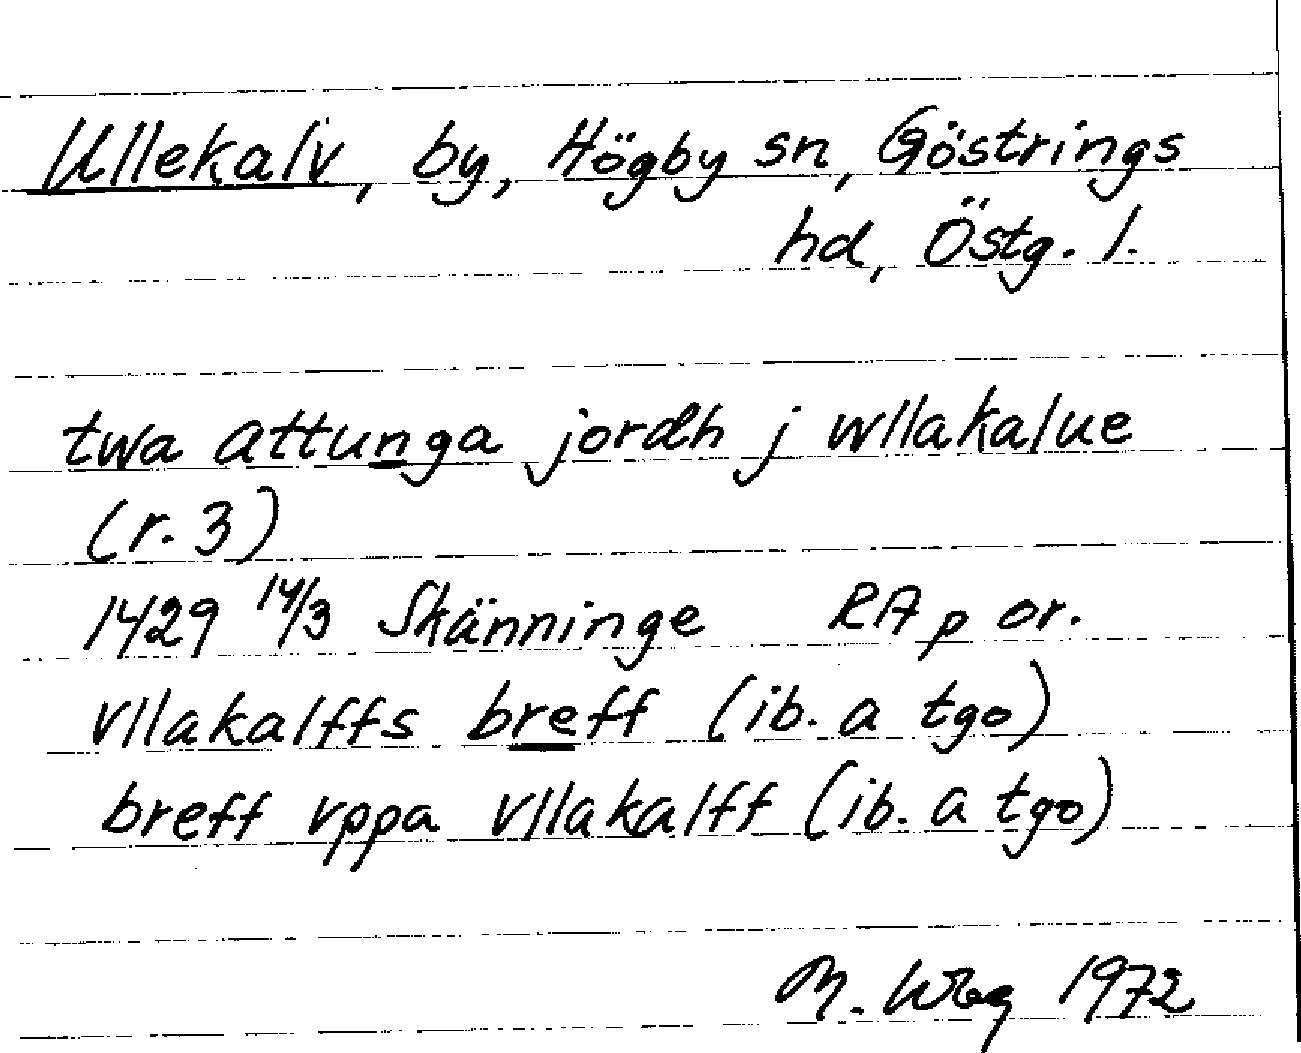 Ullekalv, by, Högby sn, Göstrings
hd, Östg. l.
twa attunga jordh j wllakalue
(r. 3)
1429 14/3 Skänninge RAp or.
vllakalffs breff (ib. a tgo)
breff vppa vllakalff (ib. a tgo)
M. Wbg 1972